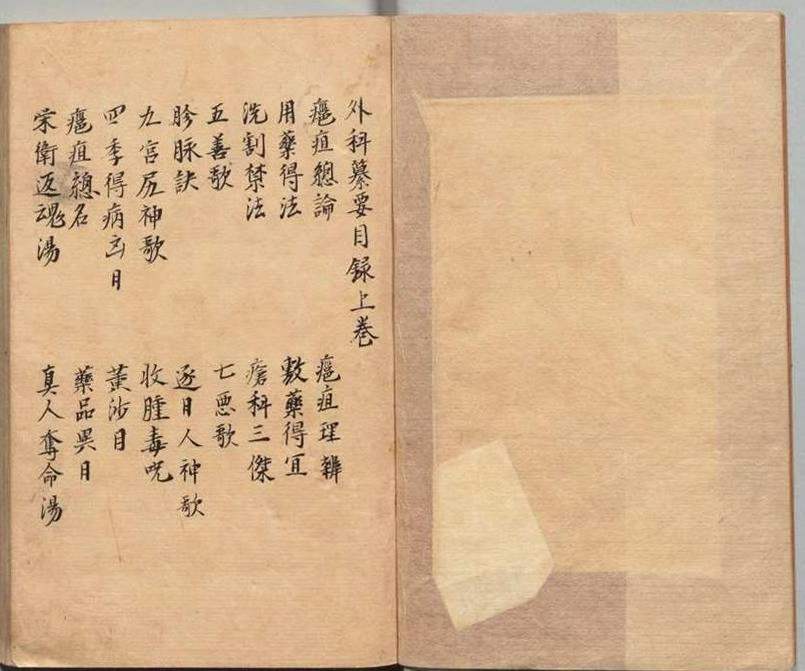 外科纂要目録上巻
癰疽總論 癰疽理辨
用藥得法 敷藥得宜
洗割禁法 瘡科三傑
五善歌 七悪歌
胗脉訣 逐日人神歌
九宮尻神歌 收腫毒呪
四季得病凶日 黃沙日
癰疽總名 藥品異目
栄衛返魂湯 真人奪命湯